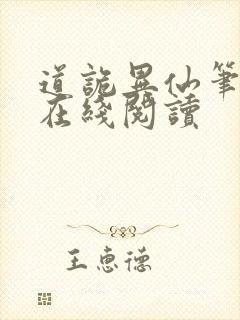 道詭異仙筆
在綫閱讀
王惠德